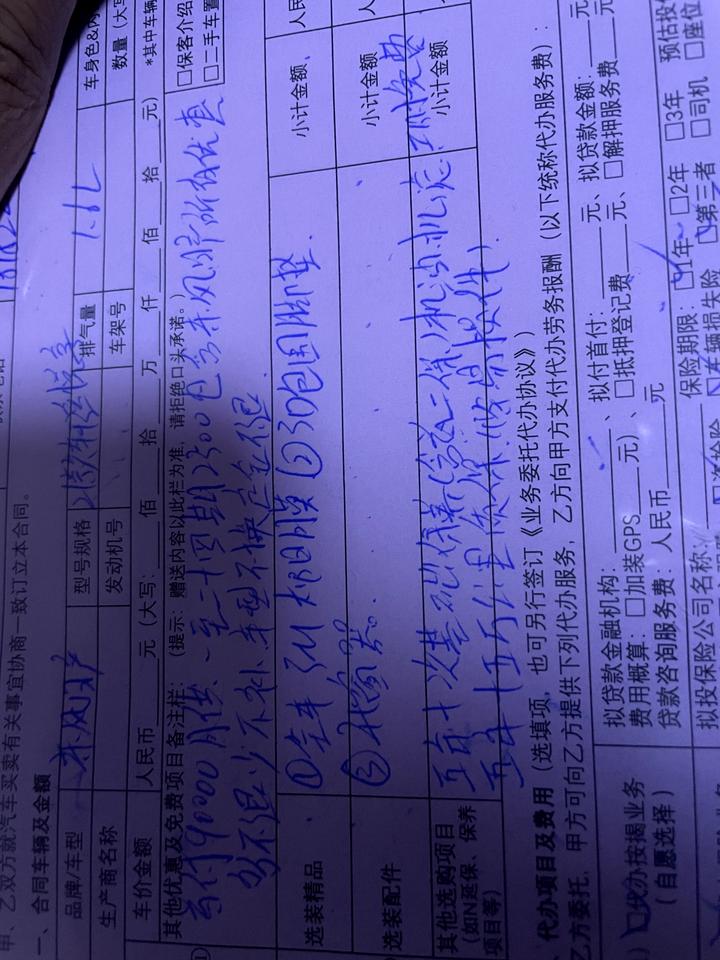 甲、乙双方就汽车买卖有关事宜协商一致订立本合同。
一、合同车辆及金额
品牌/车型 东风日产 型号规格 21款轩逸悦享 排气量 1.6L 车身色&内
生产商名称 发动机号 车架号 数量(大写
车价金额 人民币 元(大写: 佰 拾 万 仟 佰 拾 元) *其中车辆
其他优惠及免费项目备注栏: (提示: 赠送内容以此栏为准, 请拒绝口头承诺。) □保客介绍
□二手车置
首付90000 月供 一至二十四期2500 包含东风日产所有优惠
多不退少不补 车型不换定金不退
选装精品 ①全车3M太阳膜 ②360包围脚垫. 小计金额, 人民
③ 小计金额
选装配件
其他选购项目 五年十次基础保养(含 二保)机油机滤 免费 小计金额
(如N延保、保养 五年十五万公里质保
项目等)
代办项目及费用 (选填项, 也可另行签订《业务委托代办协议》)
乙方委托, 甲方可向乙方提供下列代办服务, 乙方向甲方支付代办劳务报酬 (以下统称代办服务费):
□代办按揭业务 拟贷款金融机构: 、拟付首付: 元、拟贷款金额: 元
(自愿选择) 费用概算: □加装GPS 元)、□抵押登记费 元、□解押服务费 元
贷款咨询服务费: 人民币 元
拟投保险公司名称: 保险期限: □1年 □2年 □3年 预估投
□车辆损失险 □第三者 □司机 □座位